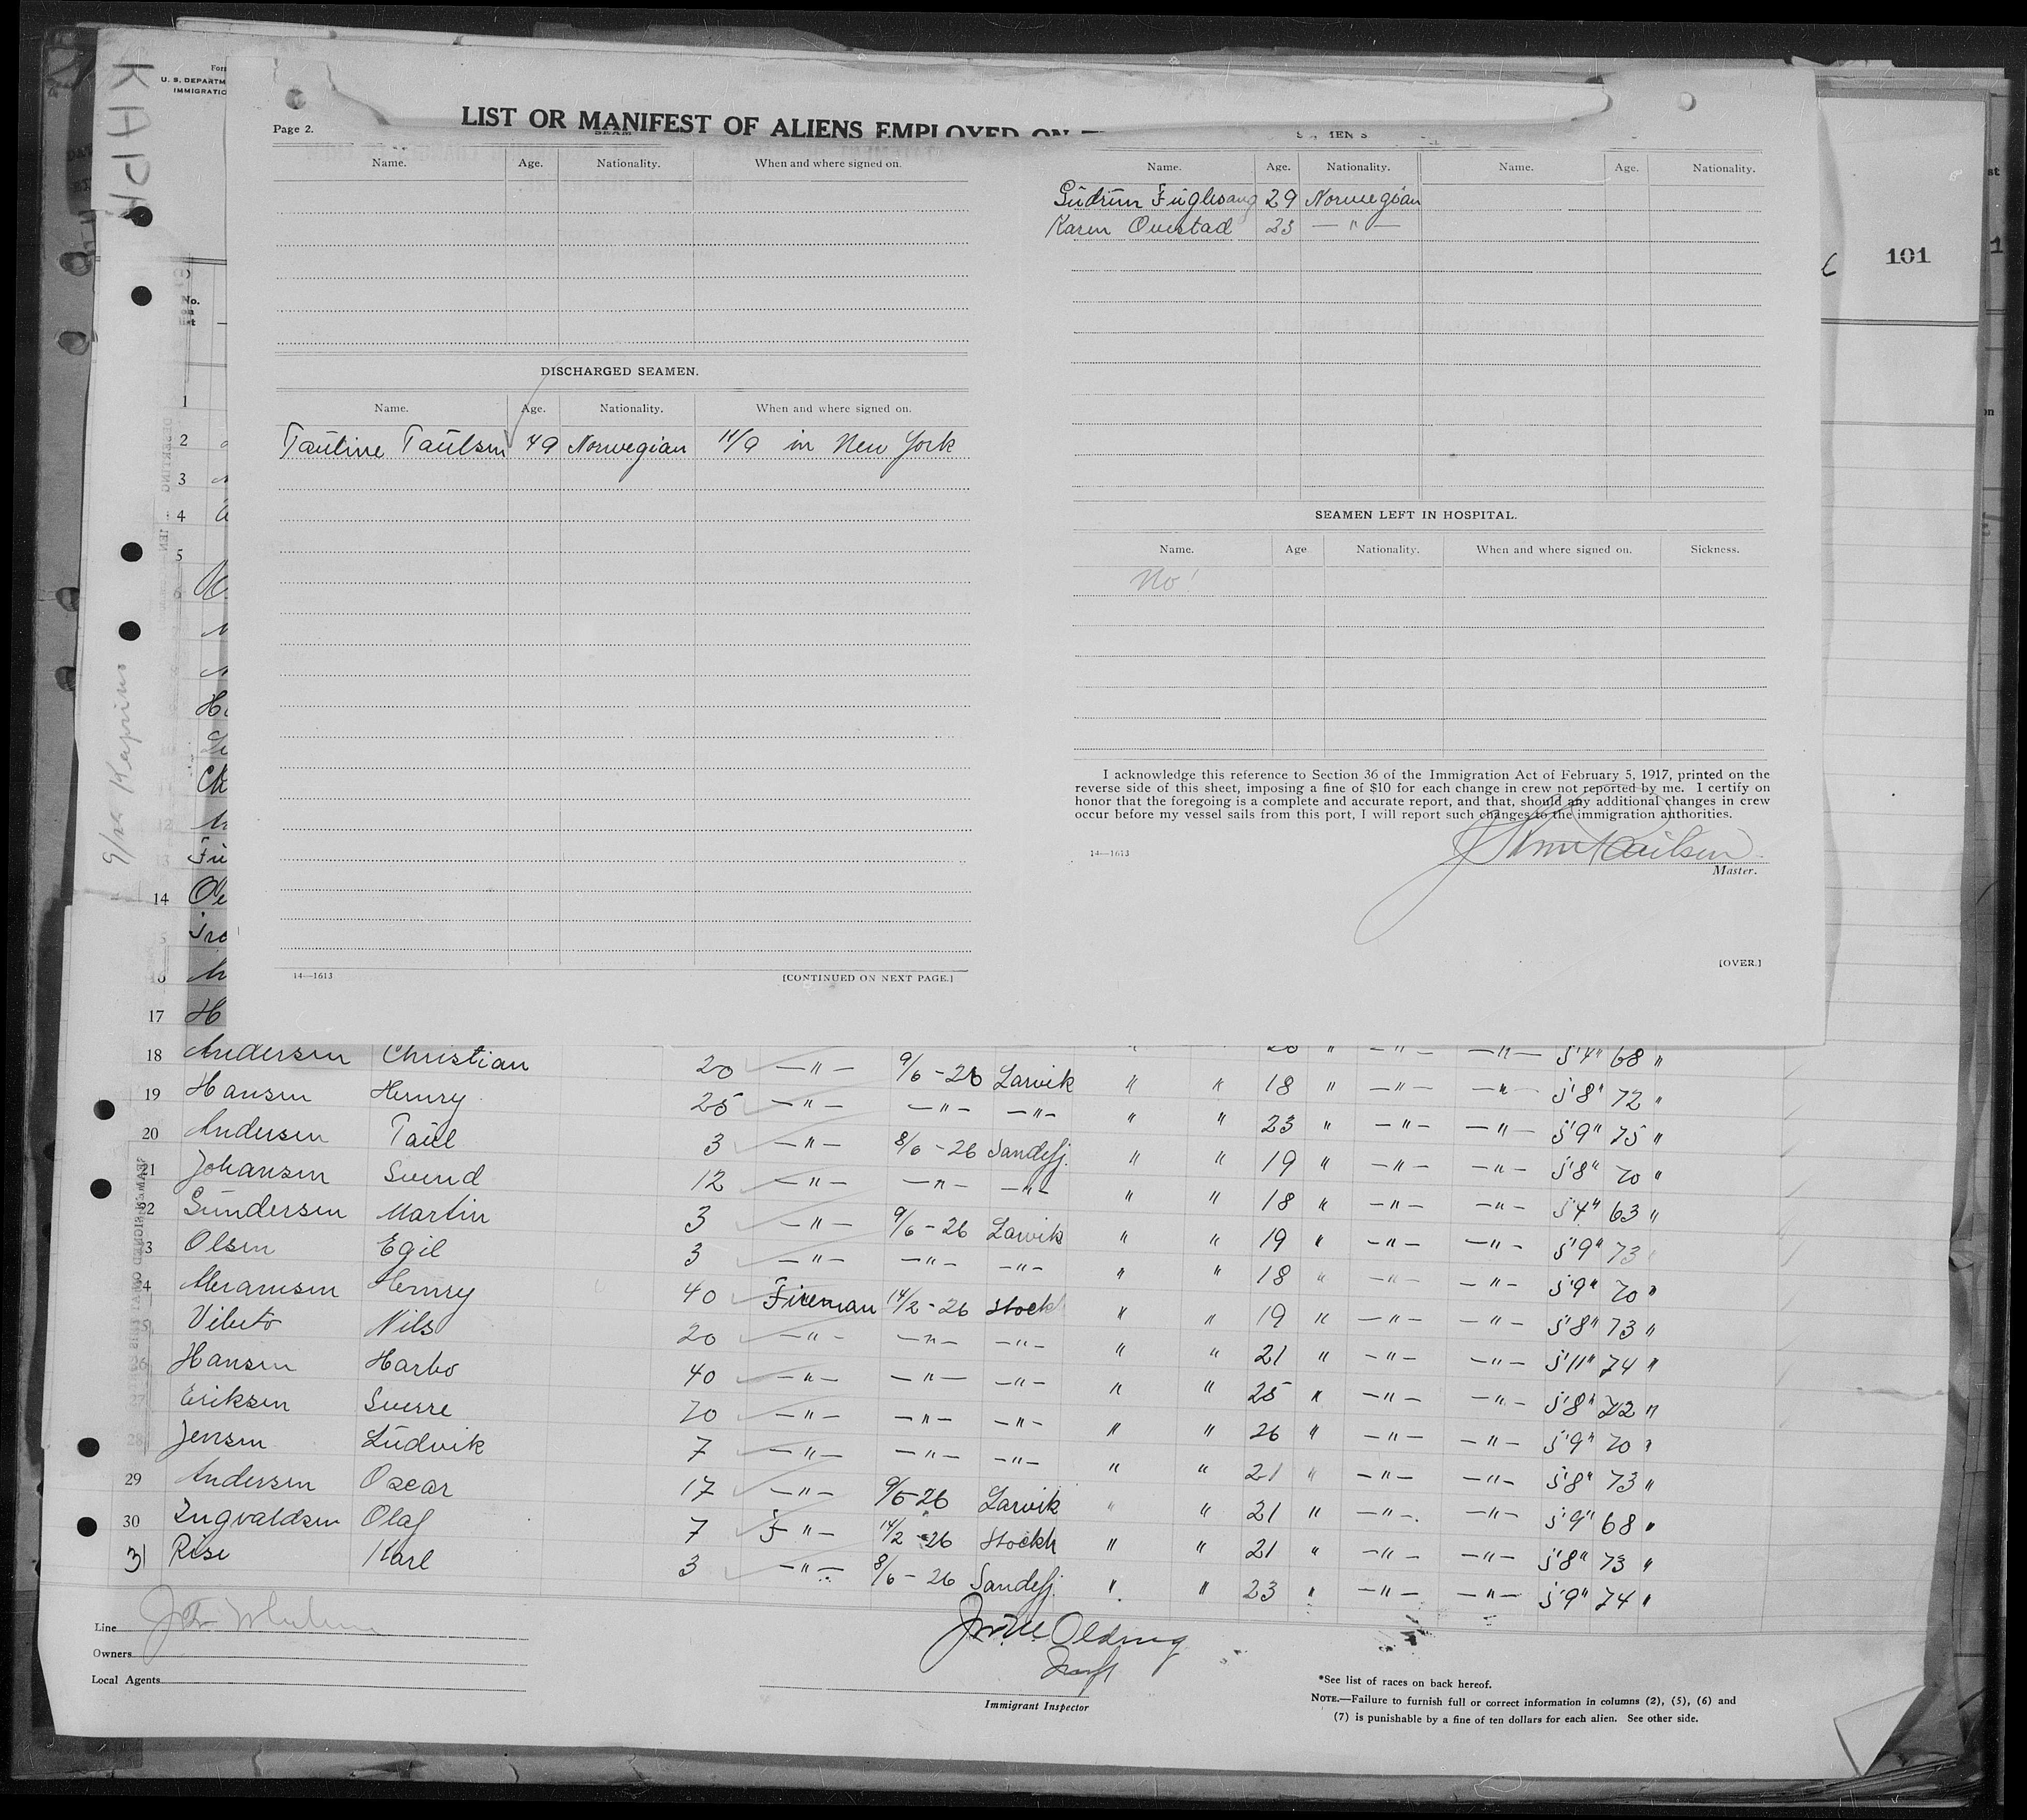 KAPR
Form
U. S. DEPARTM
IMMIGRATIO
Page 2.
LIST OR MANIFEST OF ALIENS EMPLOYED ON
Name. Age. Nationality. When and where signed on.
DISCHARGED SEAMEN.
Name. Age. Nationality. When and where signed on.
Pauline Paulsen 49 Norwegian 11/9 in New York
14—1613 [CONTINUED ON NEXT PAGE.]
Name. Age. Nationality. Name. Age. Nationality.
Gudrun Fuglesang 29 Norwegian
Karen Overstad 23 — " —
SEAMEN LEFT IN HOSPITAL.
Name. Age Nationality. When and where signed on. Sickness.
No!
I acknowledge this reference to Section 36 of the Immigration Act of February 5, 1917, printed on the
reverse side of this sheet, imposing a fine of $10 for each change in crew not reported by me. I certify on
honor that the foregoing is a complete and accurate report, and that, should any additional changes in crew
occur before my vessel sails from this port, I will report such changes to the immigration authorities.
14—1613
Master.
[OVER.]
101
No.
on
list
1
2
3
4
5
14
17 H
18 Andersen Christian 20 — " — 9/6 - 26 Larvik " " 18 " — " — — " — 5'8" 72 "
19 Hansen Henry 25 — " — — " — — " — " " 23 " — " — — " — 5'9" 75 "
20 Andersen Paul 3 — " — 8/6 - 26 Sandefj. " " 19 " — " — — " — 5'8" 70 "
21 Johansen Svend 12 — " — — " — — " — " " 18 " — " — — " — 5'4" 63 "
22 Gundersen Martin 3 — " — 9/6 - 26 Larvik " " 19 " — " — — " — 5'9" 73
3 Olsen Egil 3 — " — — " — — " — " " 18 " — " — — " — 5'9" 70 "
24 Abramsen Henry 40 Fireman 14/2 - 26 Stockh " " 19 " — " — — " — 5'8" 73 "
Vibeto Nils 20 — " — — " — — " — " " 21 " — " — — " — 5'11" 74 "
26 Hansen Harbo 40 — " — — " — — " — " " 25 " — " — — " — 5'8" 72 "
27 Eriksen Sverre 20 — " — — " — — " — " " 26 " — " — — " — 5'9" 70 "
28 Jensen Ludvik 7 — " — — " — — " — " " 21 " — " — — " — 5'8" 73 "
29 Andersen Oscar 17 — " — 9/6-26 Larvik " " 21 " — " — — " — 5'9" 68 "
30 Ingvaldsen Olaf 7 — " — 14/2 - 26 Stockh " " 21 " — " — — " — 5'8" 73 "
31 Rise Karl 3 — " — 8/6 - 26 Sandefj. " " 23 " — " — — " — 5'9" 74 "
Line
Owners
Local Agents
Immigrant Inspector
*See list of races on back hereof.
NOTE.—Failure to furnish full or correct information in columns (2), (5), (6) and
(7) is punishable by a fine of ten dollars for each alien. See other side.